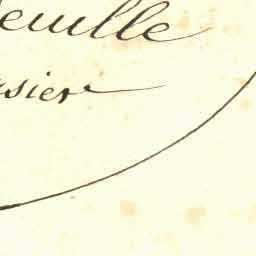 euille
sier